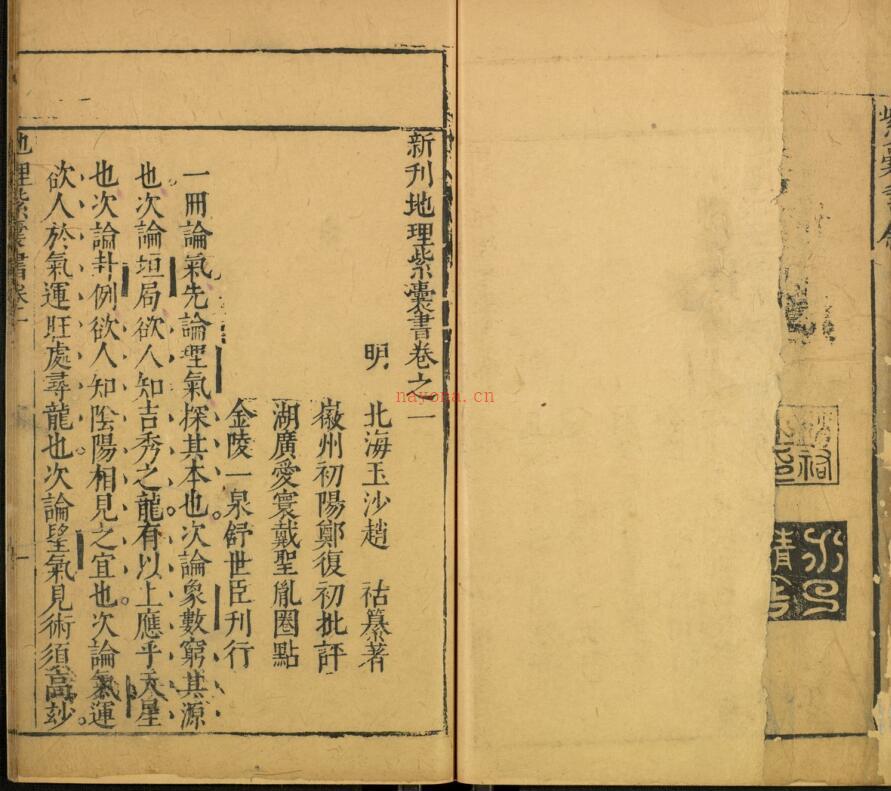 新刊地理紫囊書卷之一
明 北海玉沙趙 祜纂著
徽州初陽鄭復初批評
湖廣愛寰戴聖胤圈點
金陵一泉舒世臣刊行
一冊論氣先論理氣探其本也次論象數窮其源
也次論垣局欲人知吉秀之龍有以上應乎天星
也次論卦例欲人知陰陽相見之宜也次論氣運
欲人於氣運旺處尋龍也次論望氣見術須高妙
地理紫囊書卷一
一
nayona.cn